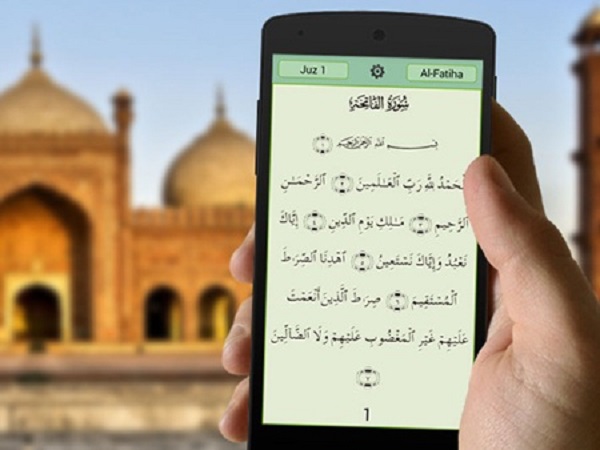 Juz 1 Al-Fatiha
سُورَةُ الفَاتِحَةِ
بِسْمِ ٱللَّهِ ٱلرَّحْمَٰنِ ٱلرَّحِيمِ ١
ٱلْحَمْدُ لِلَّهِ رَبِّ ٱلْعَٰلَمِينَ ٢ ٱلرَّحْمَٰنِ
ٱلرَّحِيمِ ٣ مَٰلِكِ يَوْمِ ٱلدِّينِ ٤ إِيَّاكَ
نَعْبُدُ وَإِيَّاكَ نَسْتَعِينُ ٥ ٱهْدِنَا ٱلصِّرَٰطَ
ٱلْمُسْتَقِيمَ ٦ صِرَٰطَ ٱلَّذِينَ أَنْعَمْتَ
عَلَيْهِمْ غَيْرِ ٱلْمَغْضُوبِ عَلَيْهِمْ وَلَا ٱلضَّآلِّينَ
٧
1